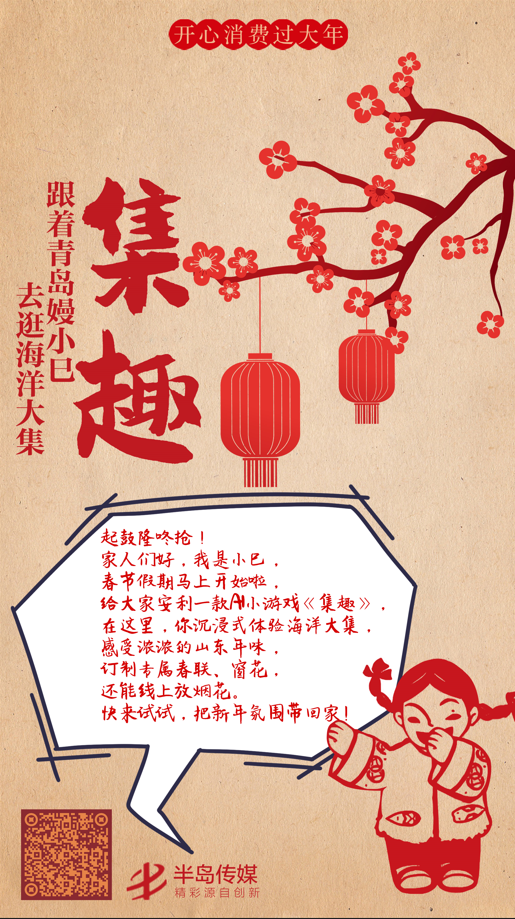 开心消费过大年
集趣
跟着青岛嫚小巳
去逛海洋大集
起鼓隆咚抢！
家人们好，我是小巳，
春节假期马上开始啦，
给大家安利一款AI小游戏《集趣》，
在这里，你沉浸式体验海洋大集，
感受浓浓的山东年味，
订制专属春联、窗花，
还能线上放烟花。
快来试试，把新年氛围带回家！
半岛传媒
精彩源自创新